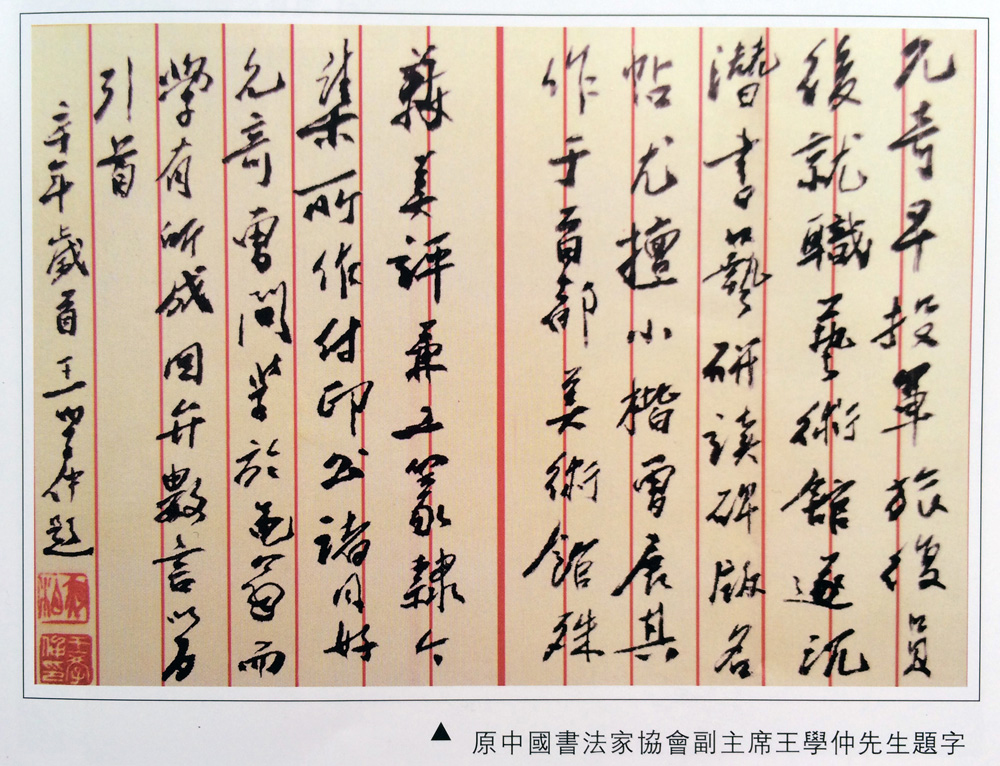 允奇早投軍旅復員
後就職藝術館遂沉
潛書藝研讀碑版名
帖尤擅小楷曾展其
作于首都美術館殊
獲美評兼工篆隸今
集所作付印公諸同好
允奇曾問業於黽翁而
學有所成因弁數言以為
引首
辛年歲首王學仲題
夜泊
王學仲印
▲ 原中國書法家協會副主席王學仲先生題字